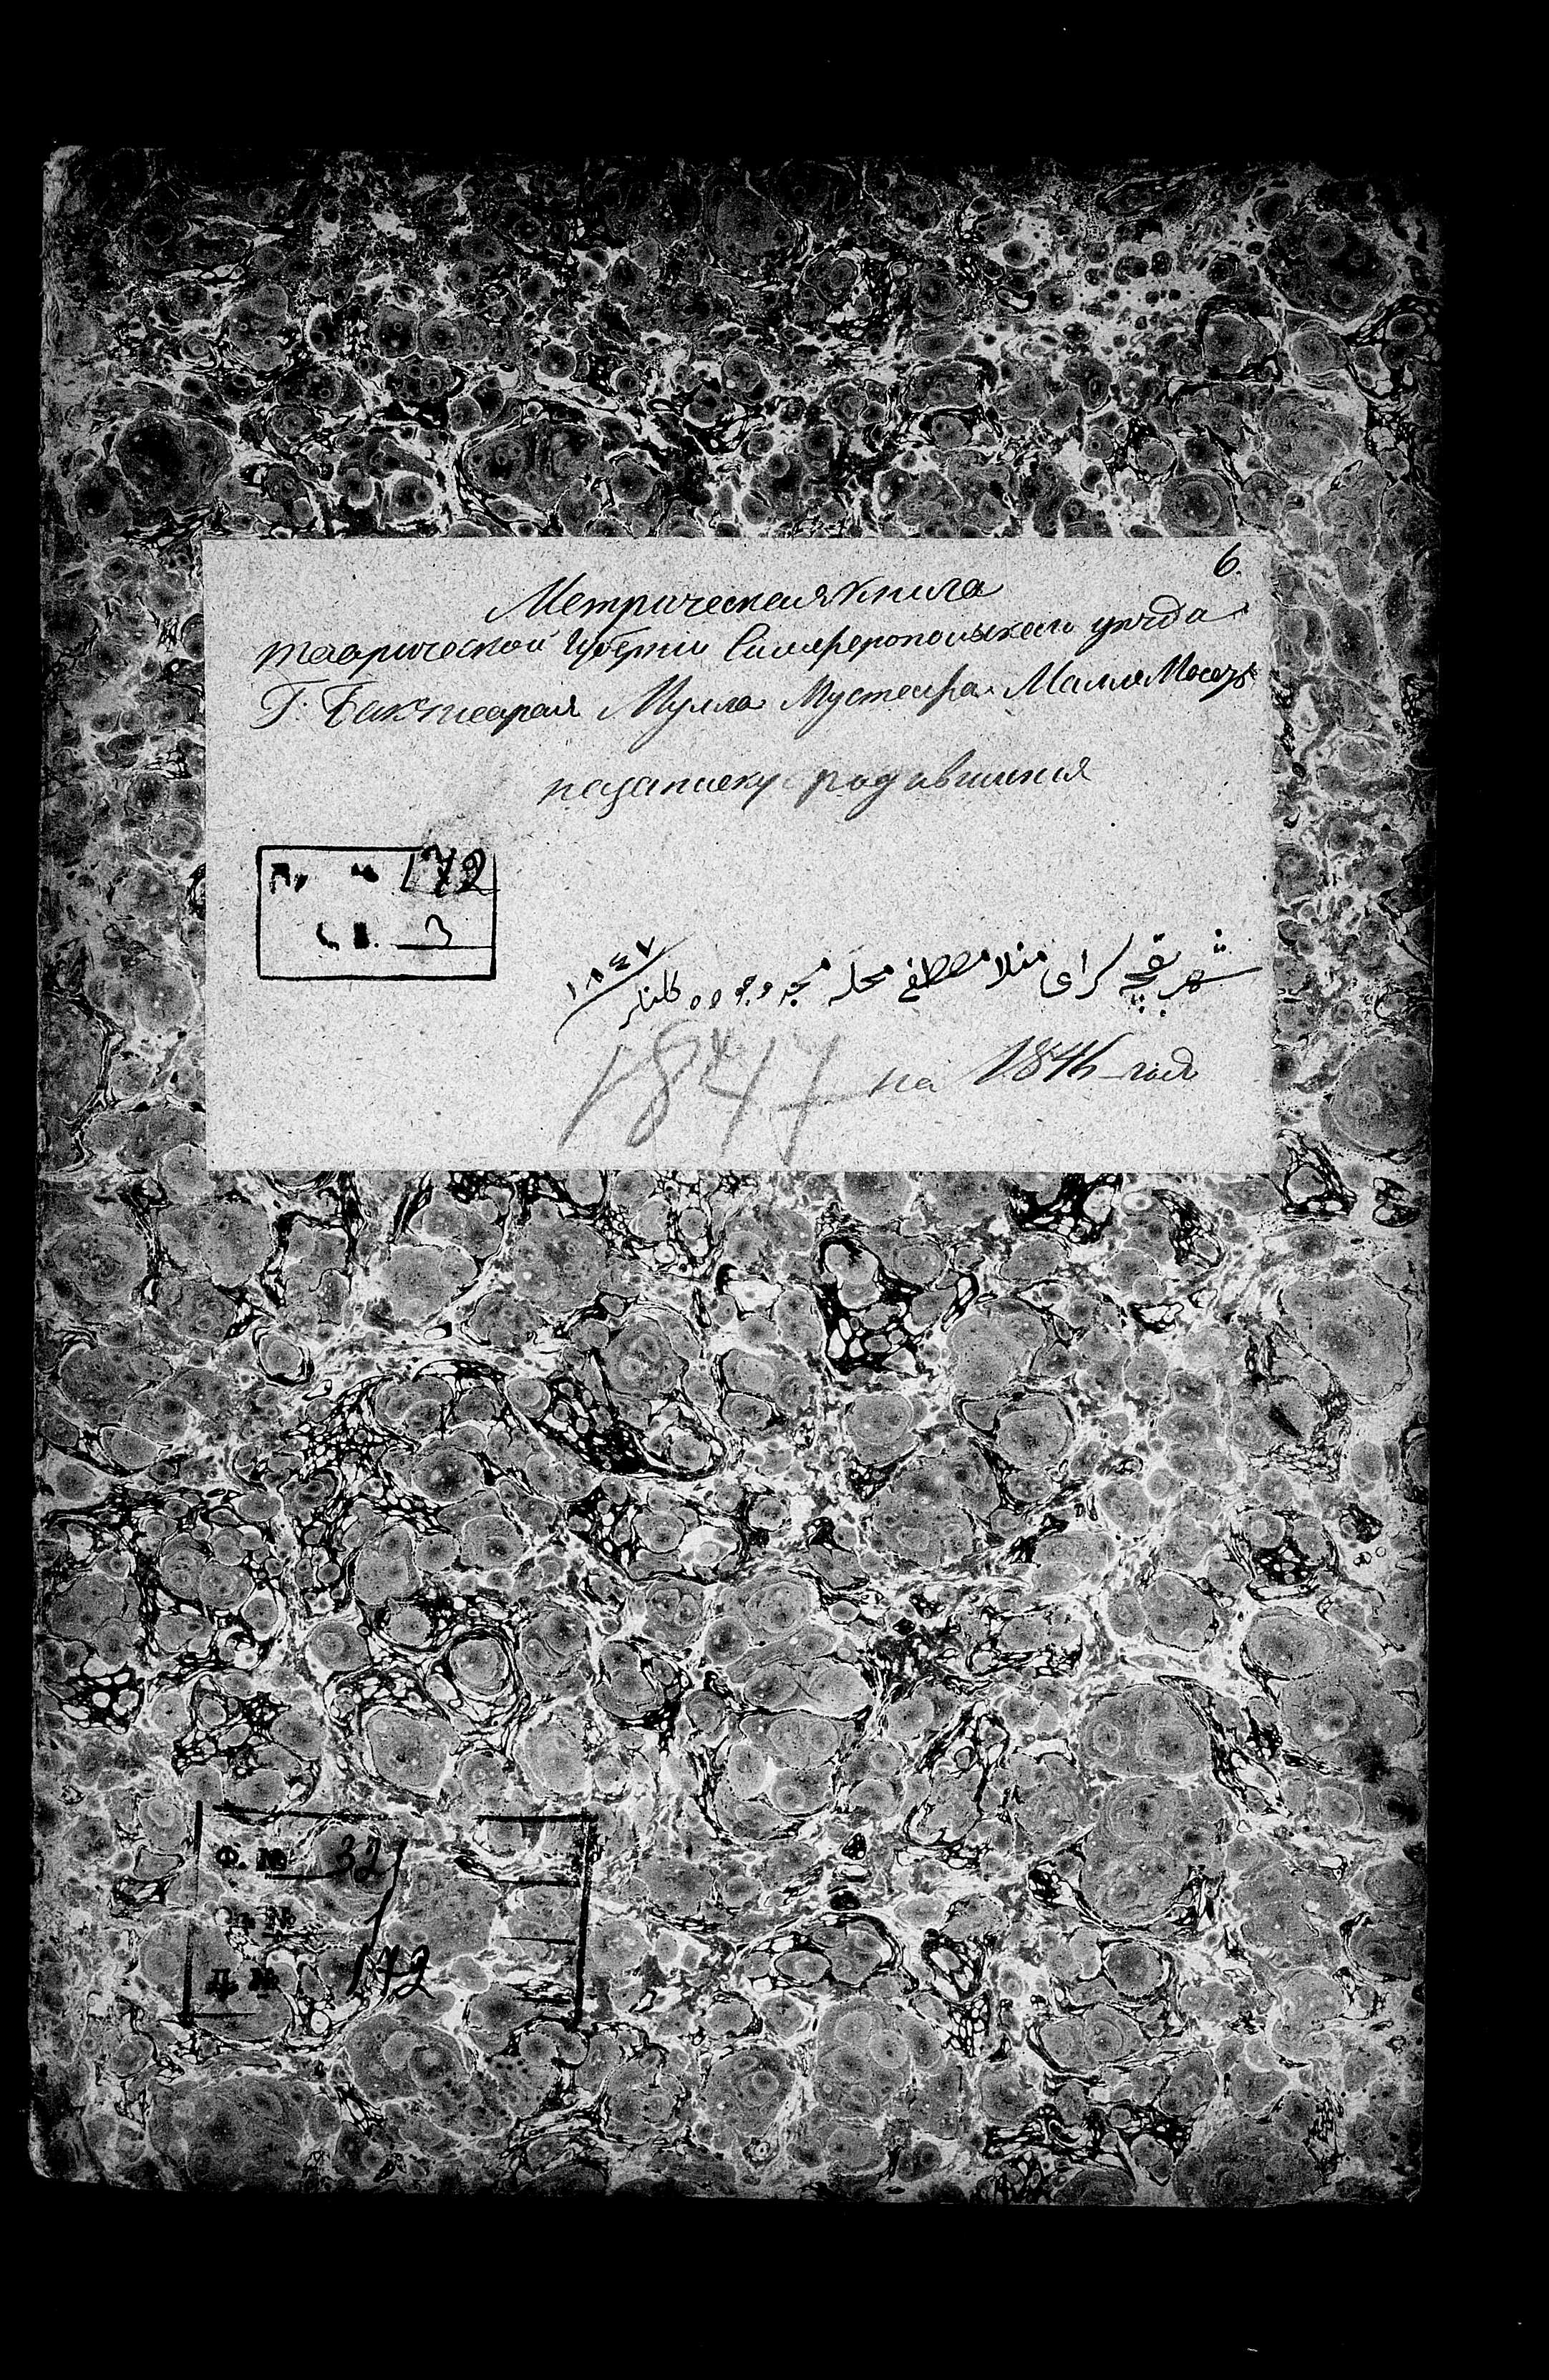 6.
Метрическая книга
таврической Губерніи Симферопольскаго уѣзда
Г. Бакчисарая Мулла Мустафа
на записку родившихся
172
3
شهر بقچه سرای منلا مصطفی محله
١٨٤٧
1847 на 1846 год
Ф. № 327
Оп. №
Д. № 172